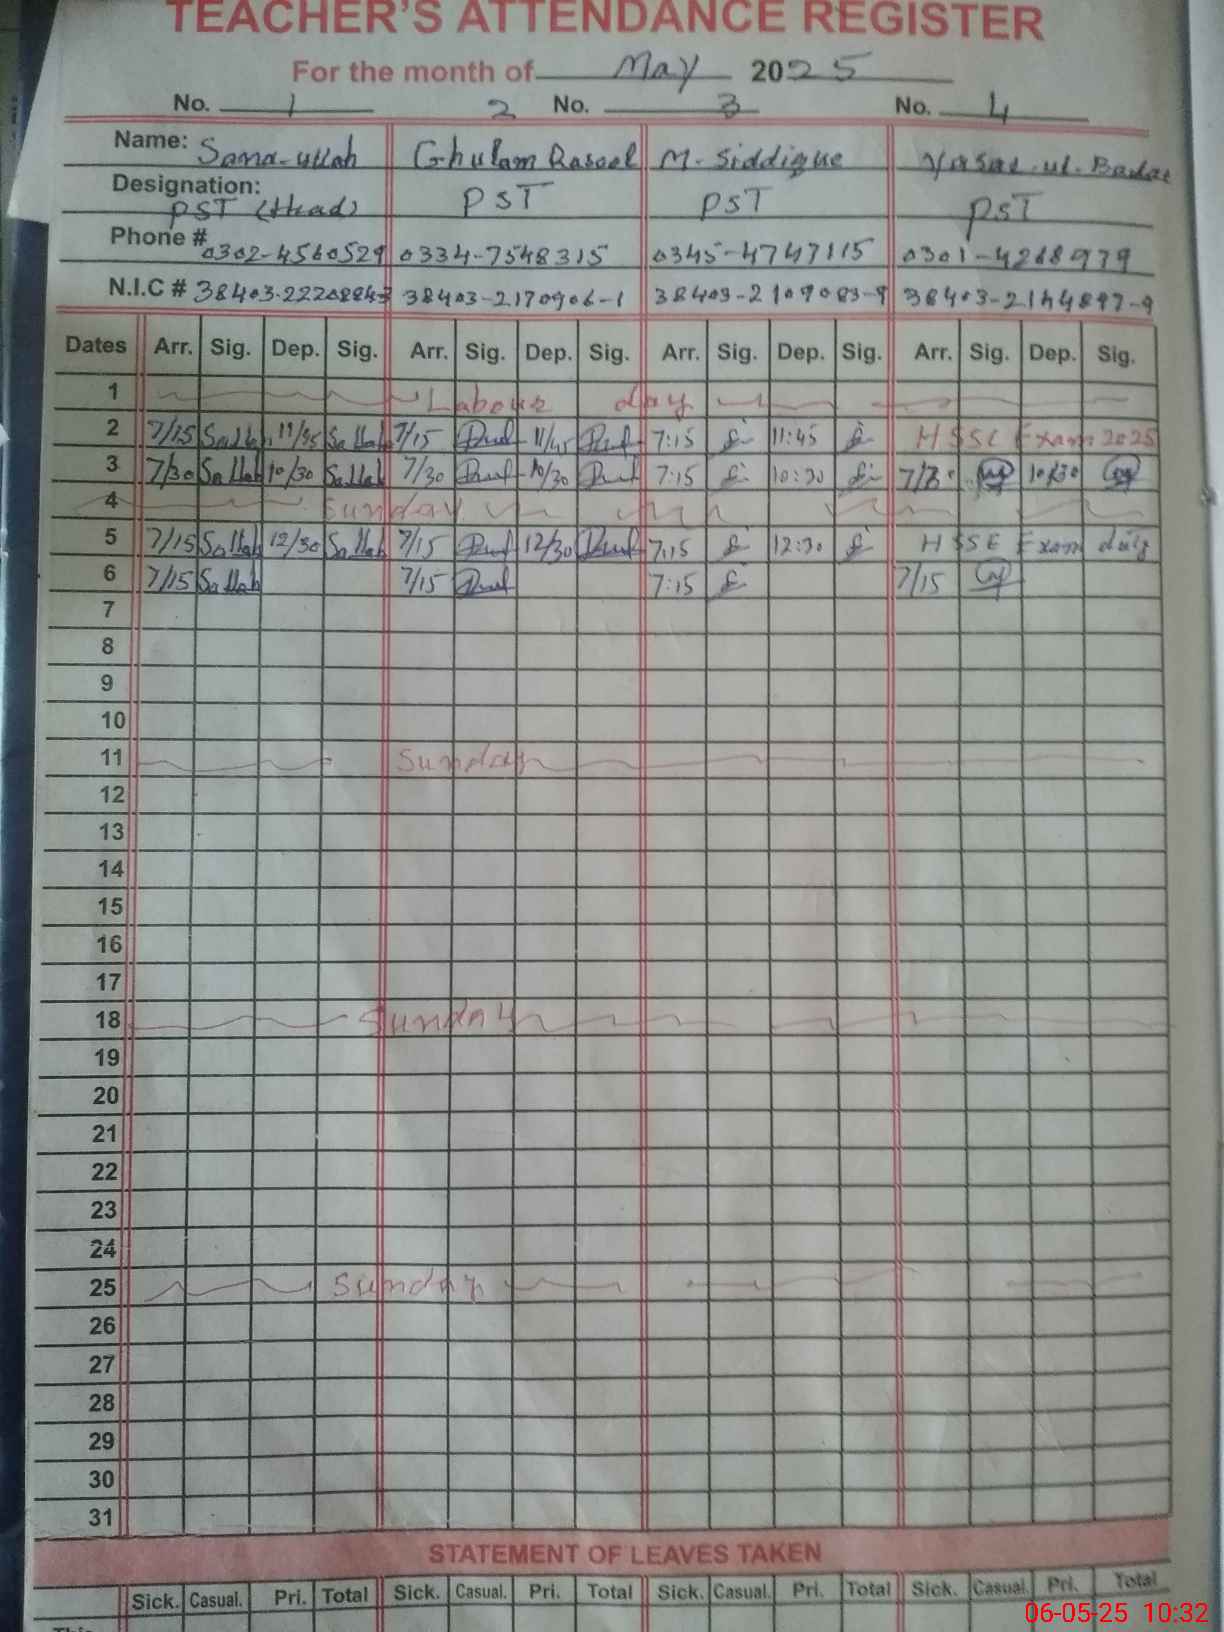 TEACHER'S ATTENDANCE REGISTER
For the month of May 2025
No. 1 2 No. 3 No. 4
Name: Sana-ullah Ghulam Rasool M. Siddique ul. Badar
Designation: PST (Head) PST PST PST
Phone # 0302-4560529 0334-7548315 0345-4747115 0301-4268979
N.I.C # 38403-2170906-1 38403-2109083-9 38403-2144897-9
Dates Arr. Sig. Dep. Sig. Arr. Sig. Dep. Sig. Arr. Sig. Dep. Sig. Arr. Sig. Dep. Sig.
1 Labour day
2 7/15 Sallah 11/35 Sallah 7/15 11/45 7:15 11:45 HSSC Exam 2025
3 7/30 Sallah 10/30 Sallah 7/30 10/30 7:15 10:30 7/30 10/30
4 Sunday
5 7/15 Sallah 12/30 Sallah 7/15 12/30 7:15 12:30 HSSE Exam duty
6 7/15 Sallah 7/15 7:15 7/15
7
8
9
10
11 Sunday
12
13
14
15
16
17
18 Sunday
19
20
21
22
23
24
25 Sunday
26
27
28
29
30
31
STATEMENT OF LEAVES TAKEN
Sick. Casual. Pri. Total Sick. Casual. Pri. Total Sick. Casual. Pri. Total Sick. Casual. Pri. Total
06-05-25 10:32